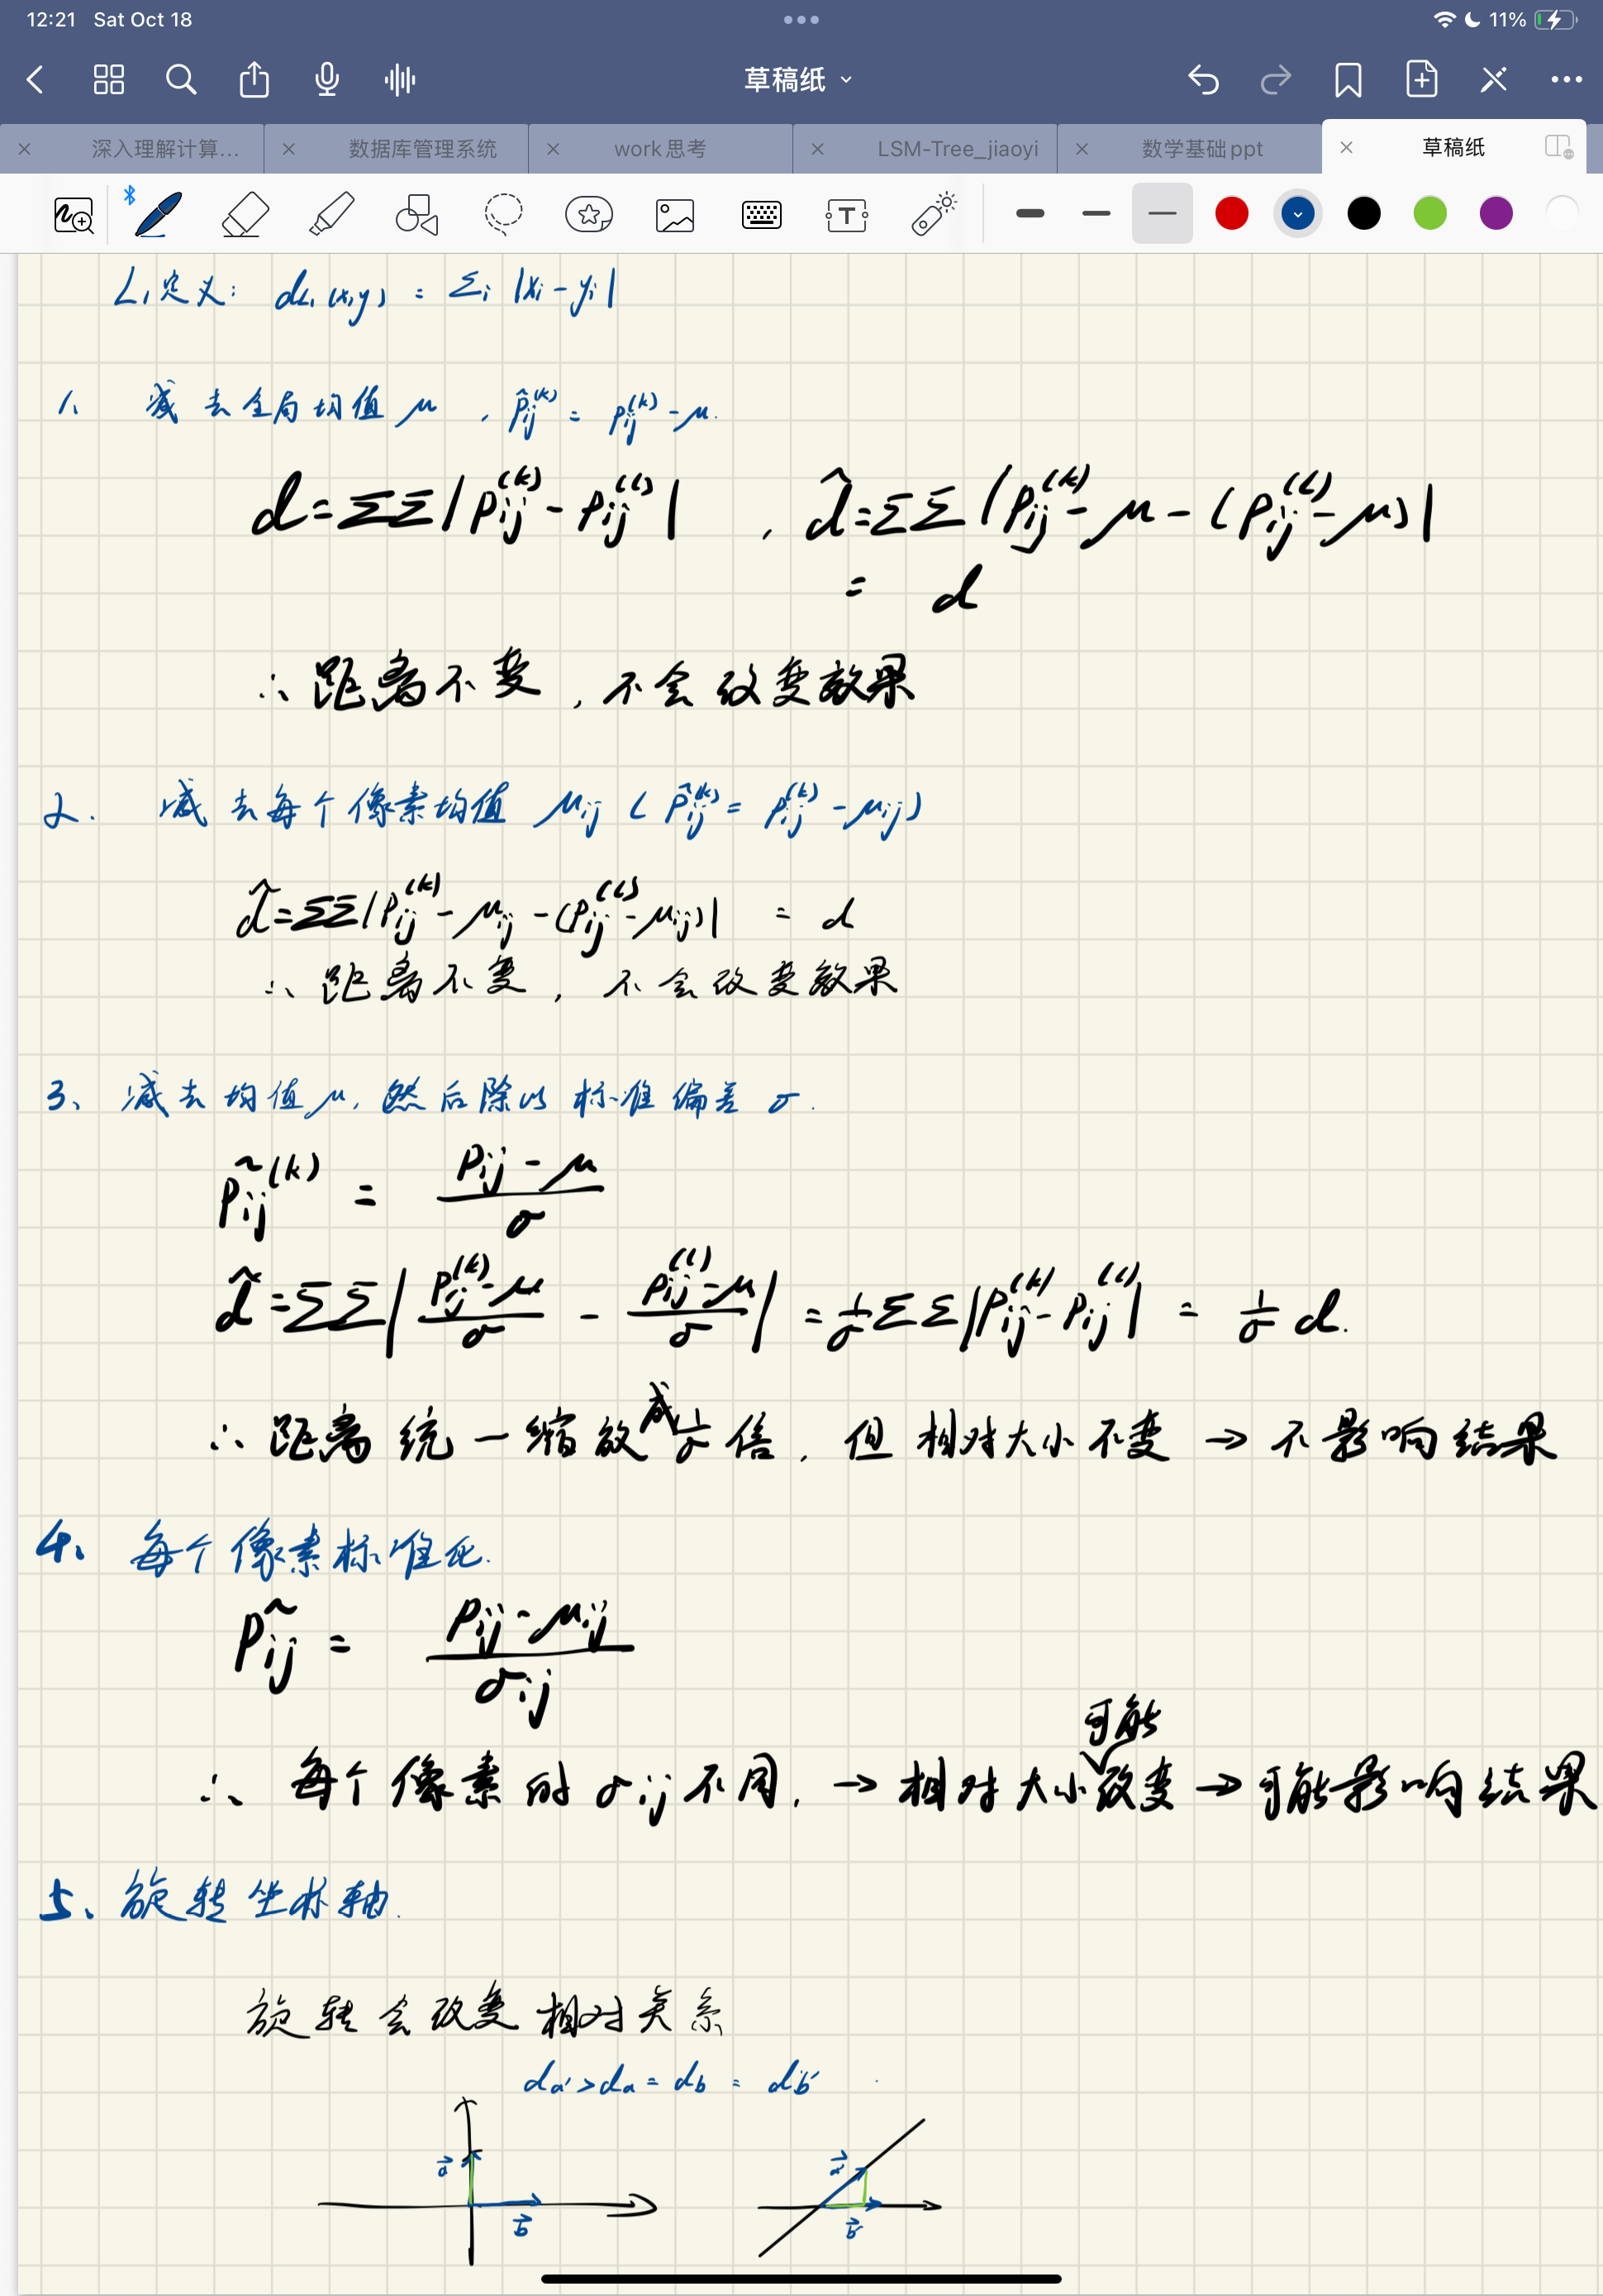 12:21 Sat Oct 18
11%
草稿纸
深入理解计算... 数据库管理系统 work思考 LSM-Tree_jiaoyi 数学基础ppt 草稿纸
L₁定义: d_{L₁}(x,y) = Σᵢ |xᵢ - yᵢ|
1、 减去全局均值 μ , p̂_{ij}^{(k)} = p_{ij}^{(k)} - μ.
d = ΣΣ|p_{ij}^{(k)} - p_{ij}^{(l)}| , d̂ = ΣΣ|p_{ij}^{(k)} - μ - (p_{ij}^{(l)} - μ)|
= d
∴ 距离不变, 不会改变效果
2. 减去每个像素均值 μ_{ij} ( p̃_{ij}^{(k)} = p_{ij}^{(k)} - μ_{ij})
d̂ = ΣΣ|p_{ij}^{(k)} - μ_{ij} - (p_{ij}^{(l)} - μ_{ij})| = d
∴ 距离不变, 不会改变效果
3、 减去均值 μ, 然后除以标准偏差 σ.
p̃_{ij}^{(k)} = \frac{p_{ij} - μ}{σ}
d̃ = ΣΣ|\frac{p_{ij}^{(k)} - μ}{σ} - \frac{p_{ij}^{(l)} - μ}{σ}| = \frac{1}{σ}ΣΣ|p_{ij}^{(k)} - p_{ij}^{(l)}| = \frac{1}{σ} d.
∴ 距离统一缩放成 \frac{1}{σ} 倍, 但相对大小不变 → 不影响结果
4、 每个像素标准化.
p̃_{ij} = \frac{p_{ij} - μ_{ij}}{σ_{ij}}
∴ 每个像素的 σ_{ij} 不同, → 相对大小可能改变 → 可能影响结果
5、 旋转坐标轴.
旋转会改变相对关系
d_{a'} > d_a = d_b = d_{b'}
a⃗ b⃗ a⃗' b⃗'